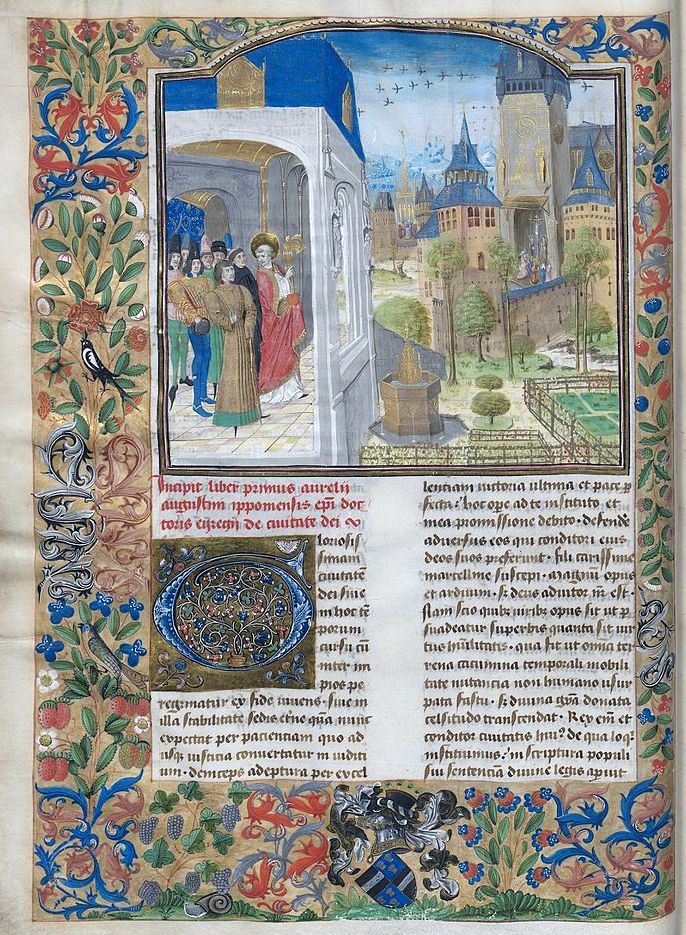 Incipit liber primus aurelii
augustini ipponensis epi doc
toris egregii de civitate dei
loriosis
simam
civitate
dei sive
in hoc te
porum
cursu cu
inter im
pios pe
regrinatur ex fide vivens · sive in
illa stabilitate sedis et'ne qua nunc
expectat per patientiam quo ad
usqz iusticia convertatur in iudici
um · deinceps adeptura per excel
lentiam victoria ultima et pace p
fecta · hoc ope ad te instituto et
mea promissione debito · defende
adversus eos qui conditori eius
deos suos preferunt · fili carissime
marcelline suscepi · magnum opus
et arduum · sz deus adiutor nr est ·
Nam scio quibz viribz opus sit ut p
suadeatur superbis quanta sit vir
tus humilitatis · qua fit ut omia ter
rena cacumina temporali mobili
tate nutancia non humano usur
pata fastu · sz divina gra donata
celsitudo transcendat · Rex em et
conditor civitatis hui9 de qua loqi
instituimus · in scriptura populi
sui sententia divine legis aperuit